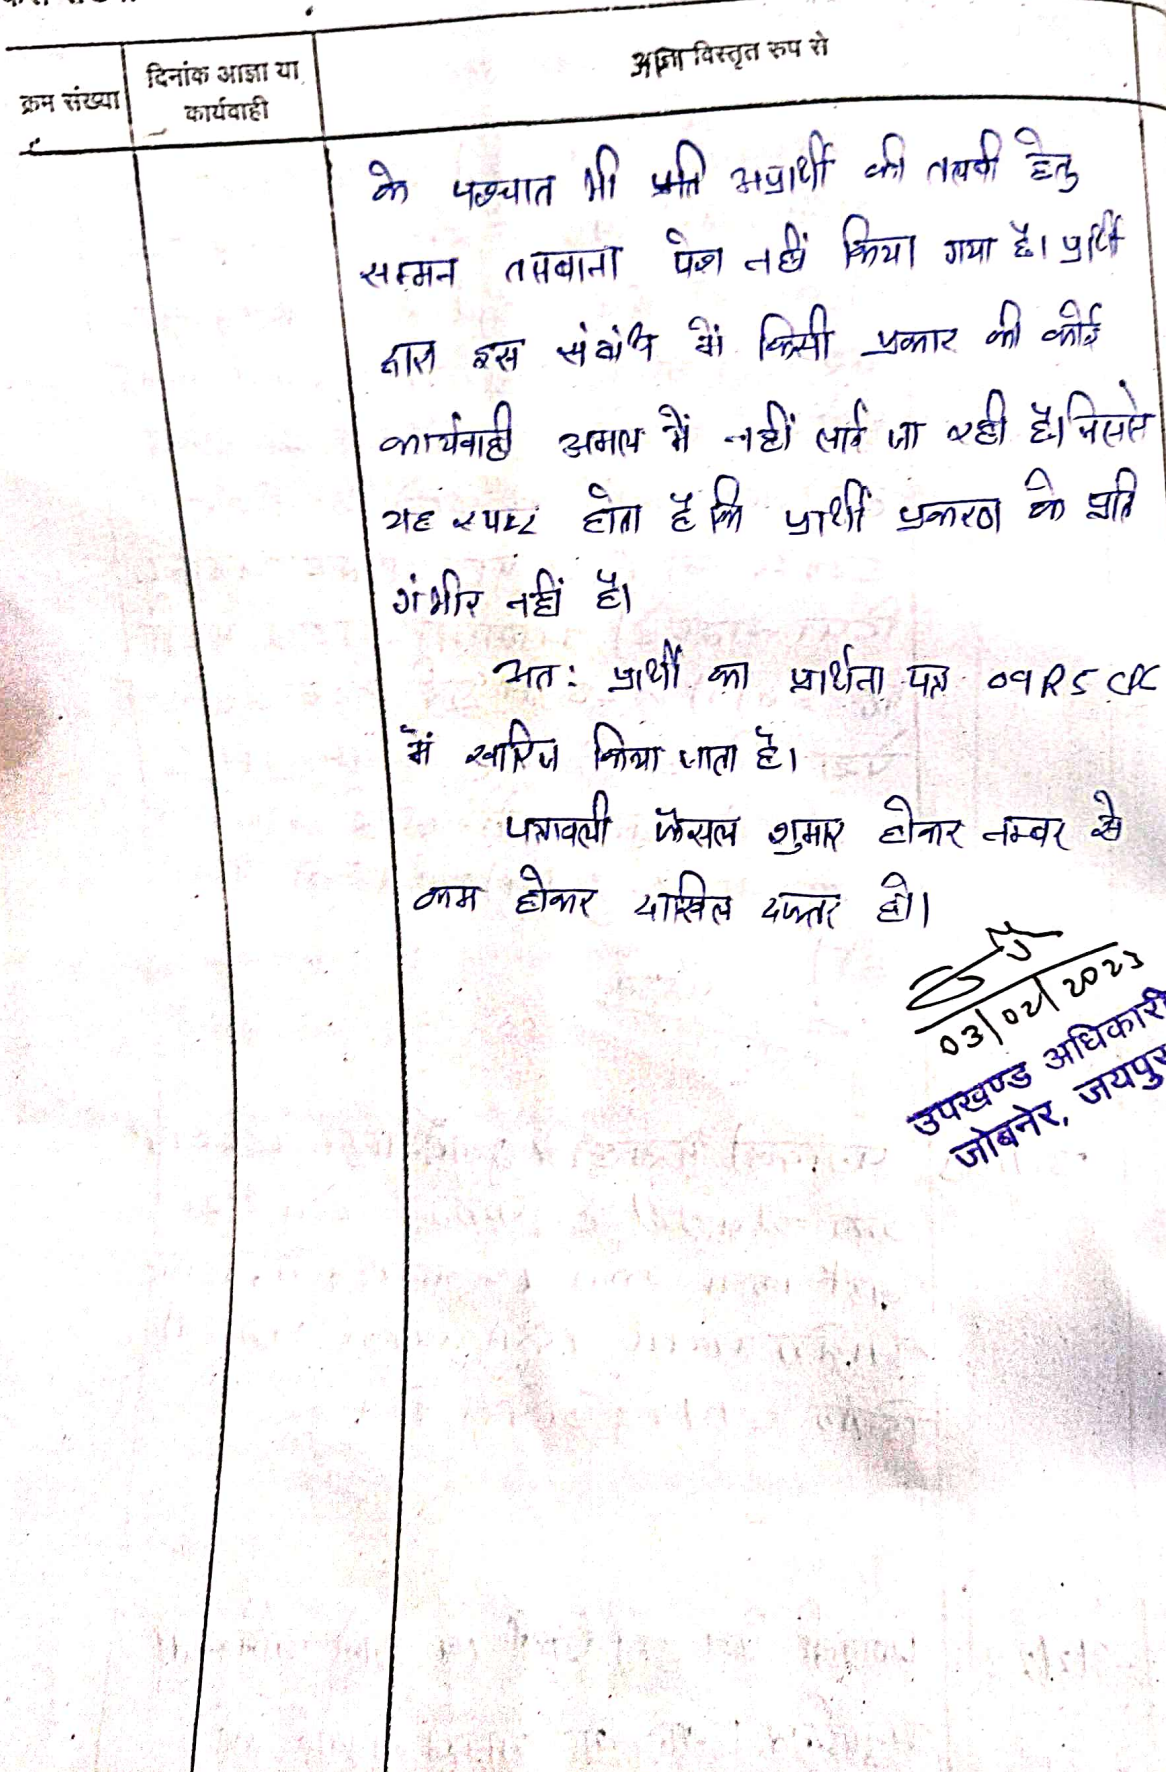 क्रम संख्या
दिनांक आज्ञा या
कार्यवाही
आज्ञा विस्तृत रुप से
के पश्चात भी प्रति अप्रार्थी की तलबी हेतु
सम्मन तलबाना पेश नहीं किया गया है। प्रार्थी
द्वारा इस संबंध में किसी प्रकार की कोई
कार्यवाही अमल में नहीं लाई जा रही है। जिससे
यह स्पष्ट होता है कि प्रार्थी प्रकरण के प्रति
गंभीर नहीं है।
अतः प्रार्थी का प्रार्थना पत्र 09R5 CPC
में खारिज किया जाता है।
पत्रावली फैसल शुमार होकर नम्बर से
कम होकर दाखिल दफ्तर हो।
03/02/2023
उपखण्ड अधिकारी
जोबनेर, जयपुर